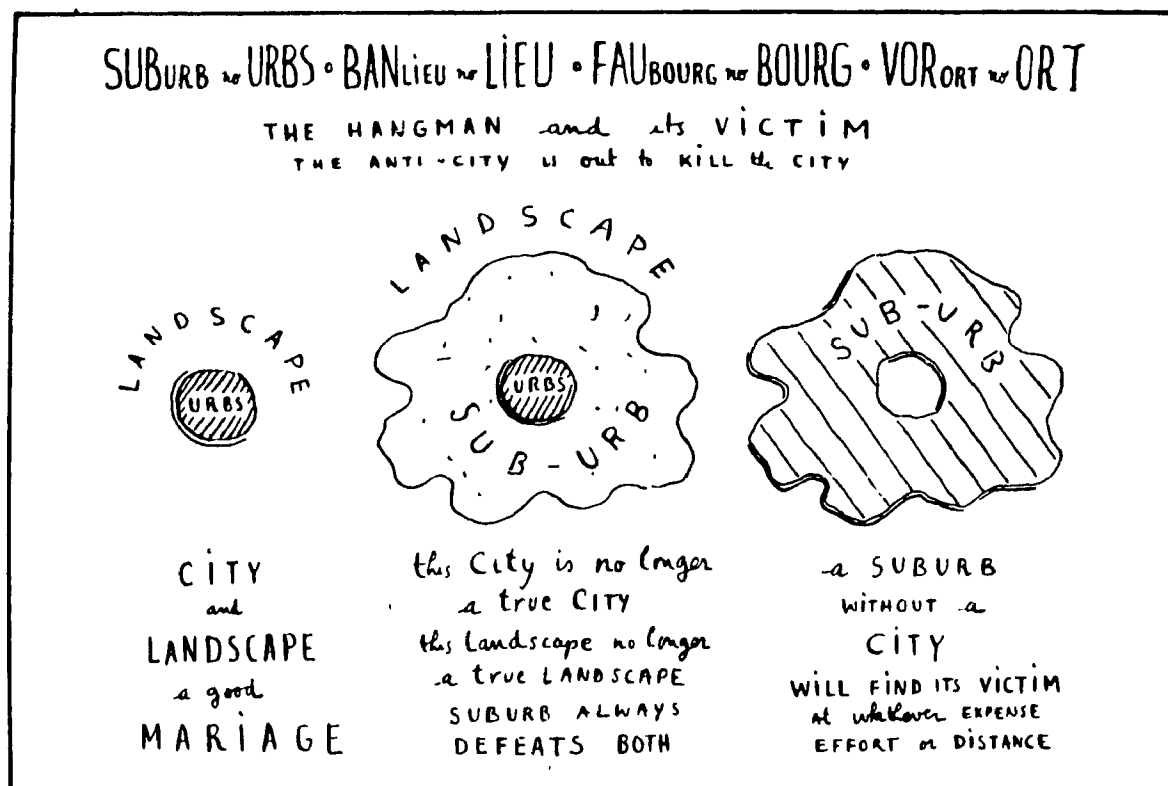 SUBURB no URBS • BANLIEU no LIEU • FAUBOURG no BOURG • VORORT no ORT
THE HANGMAN and its VICTIM
THE ANTI-CITY is out to KILL the CITY
LANDSCAPE
URBS
LANDSCAPE
URBS
SUB-URB
SUB-URB
CITY
and
LANDSCAPE
a good
MARIAGE
this City is no longer
a true CITY
this Landscape no longer
a true LANDSCAPE
SUBURB ALWAYS
DEFEATS BOTH
a SUBURB
WITHOUT a
CITY
WILL FIND ITS VICTIM
at whatever EXPENSE
EFFORT or DISTANCE